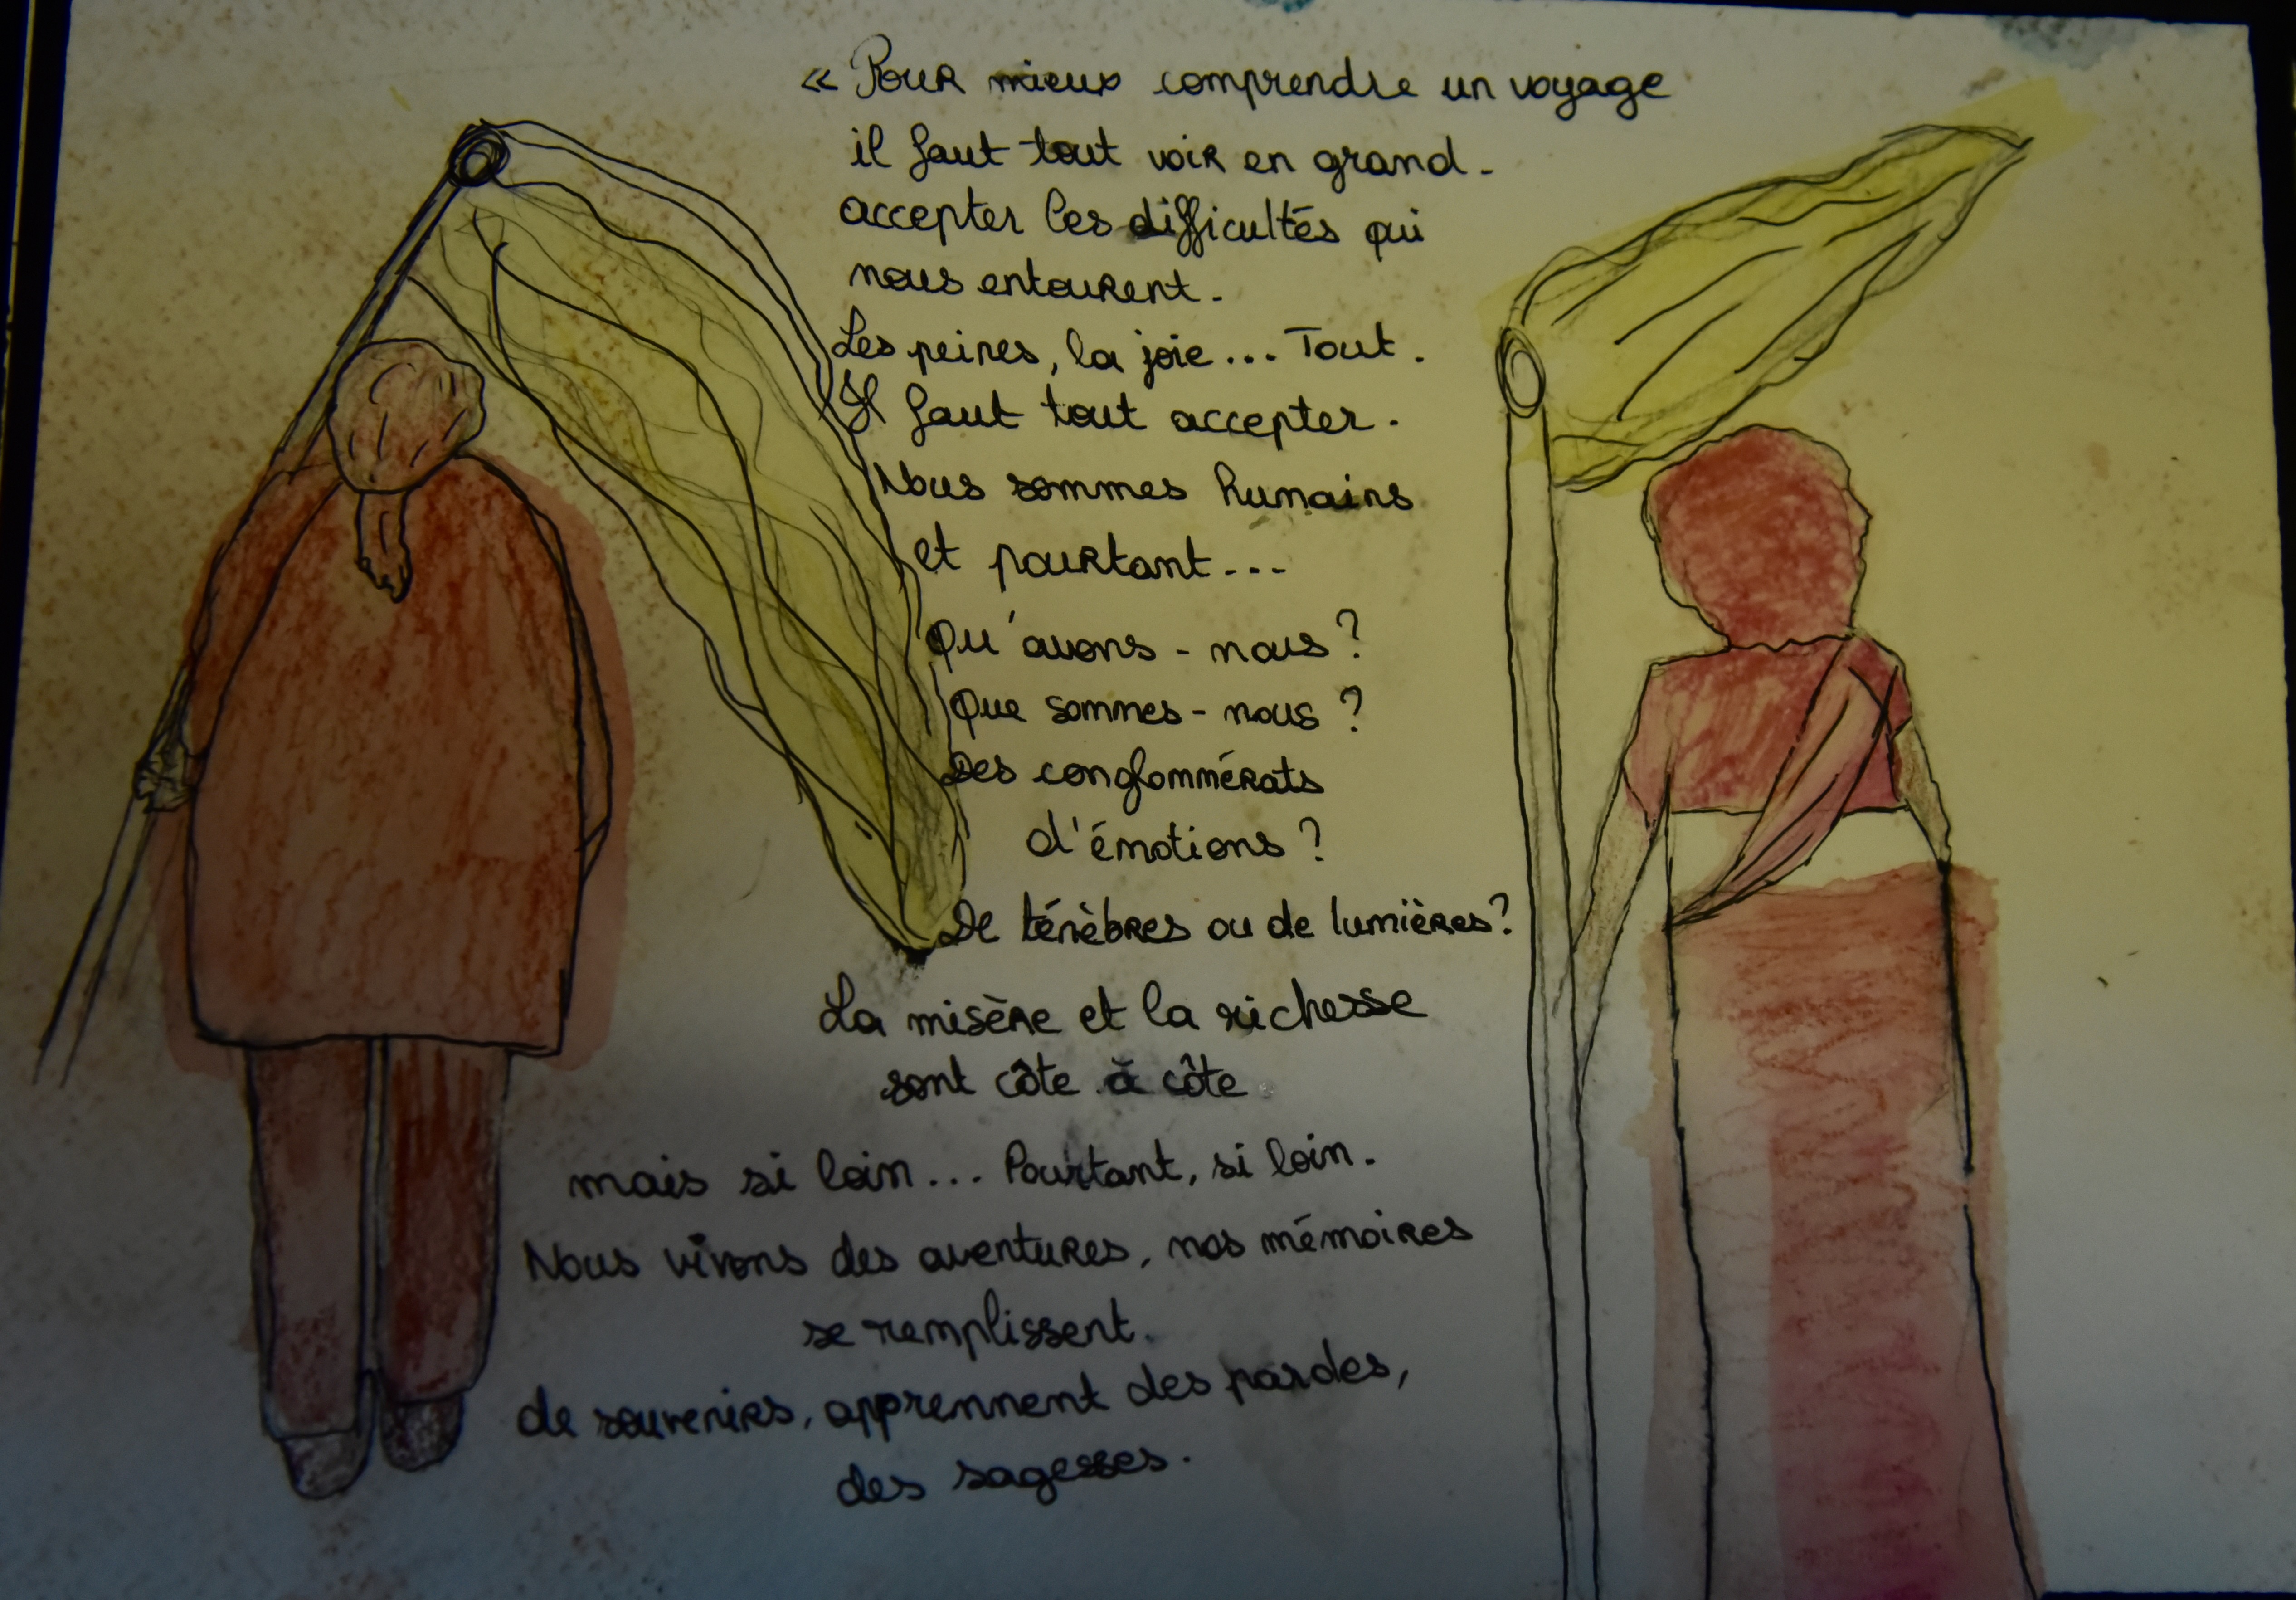 « Pour mieux comprendre un voyage
il faut tout voir en grand.
accepter les difficultés qui
nous entourent.
Les peines, la joie... Tout.
Il faut tout accepter.
Nous sommes humains
et pourtant...
Qu'avons-nous ?
Que sommes-nous ?
Des conglommérats
d'émotions ?
De ténèbres ou de lumières?
La misère et la richesse
sont côte à côte
mais si loin... Pourtant, si loin.
Nous vivons des aventures, nos mémoires
se remplissent.
de souvenirs, apprennent des paroles,
des sagesses.